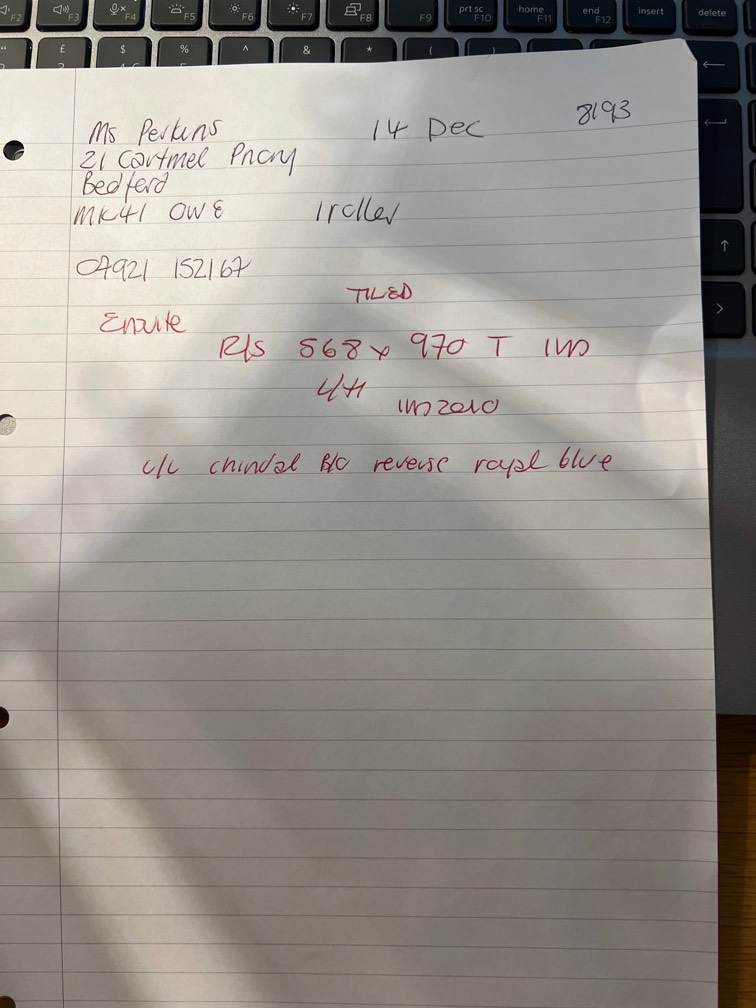 F2 F3 F4 F5 F6 F7 F8 F9 prt sc F10 home F11 end F12 insert delete
" £ $ % ^ & * ( )
Ms Perkins 14 Dec 8193
21 Cartmel Priory
Bedford
MK41 0WE 1 roller
07921 152167
TILED
Ensuite
R/S 568 x 970 T
L/H
c/c B/O reverse royal blue